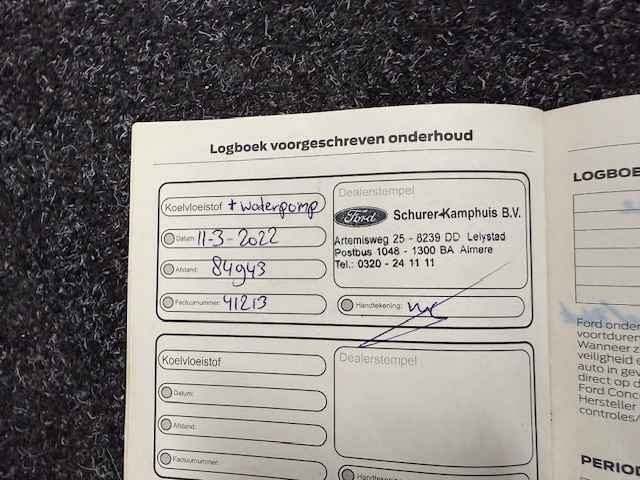 Logboek voorgeschreven onderhoud
Koelvloeistof + waterpomp
Datum: 11-3-2022
Afstand: 84943
Factuurnummer: 41213
Dealerstempel
Ford Schurer-Kamphuis B.V.
Artemisweg 25 - 8239 DD Lelystad
Postbus 1048 - 1300 BA Almere
Tel.: 0320 - 24 11 11
Handtekening:
Koelvloeistof
Datum:
Afstand:
Factuurnummer:
Dealerstempel
Handtekening:
LOGBOE
Ford onder
voortduren
Wanneer z
veiligheid e
auto in gev
direct op d
Ford Conc
Hersteller
controles/
PERIOD